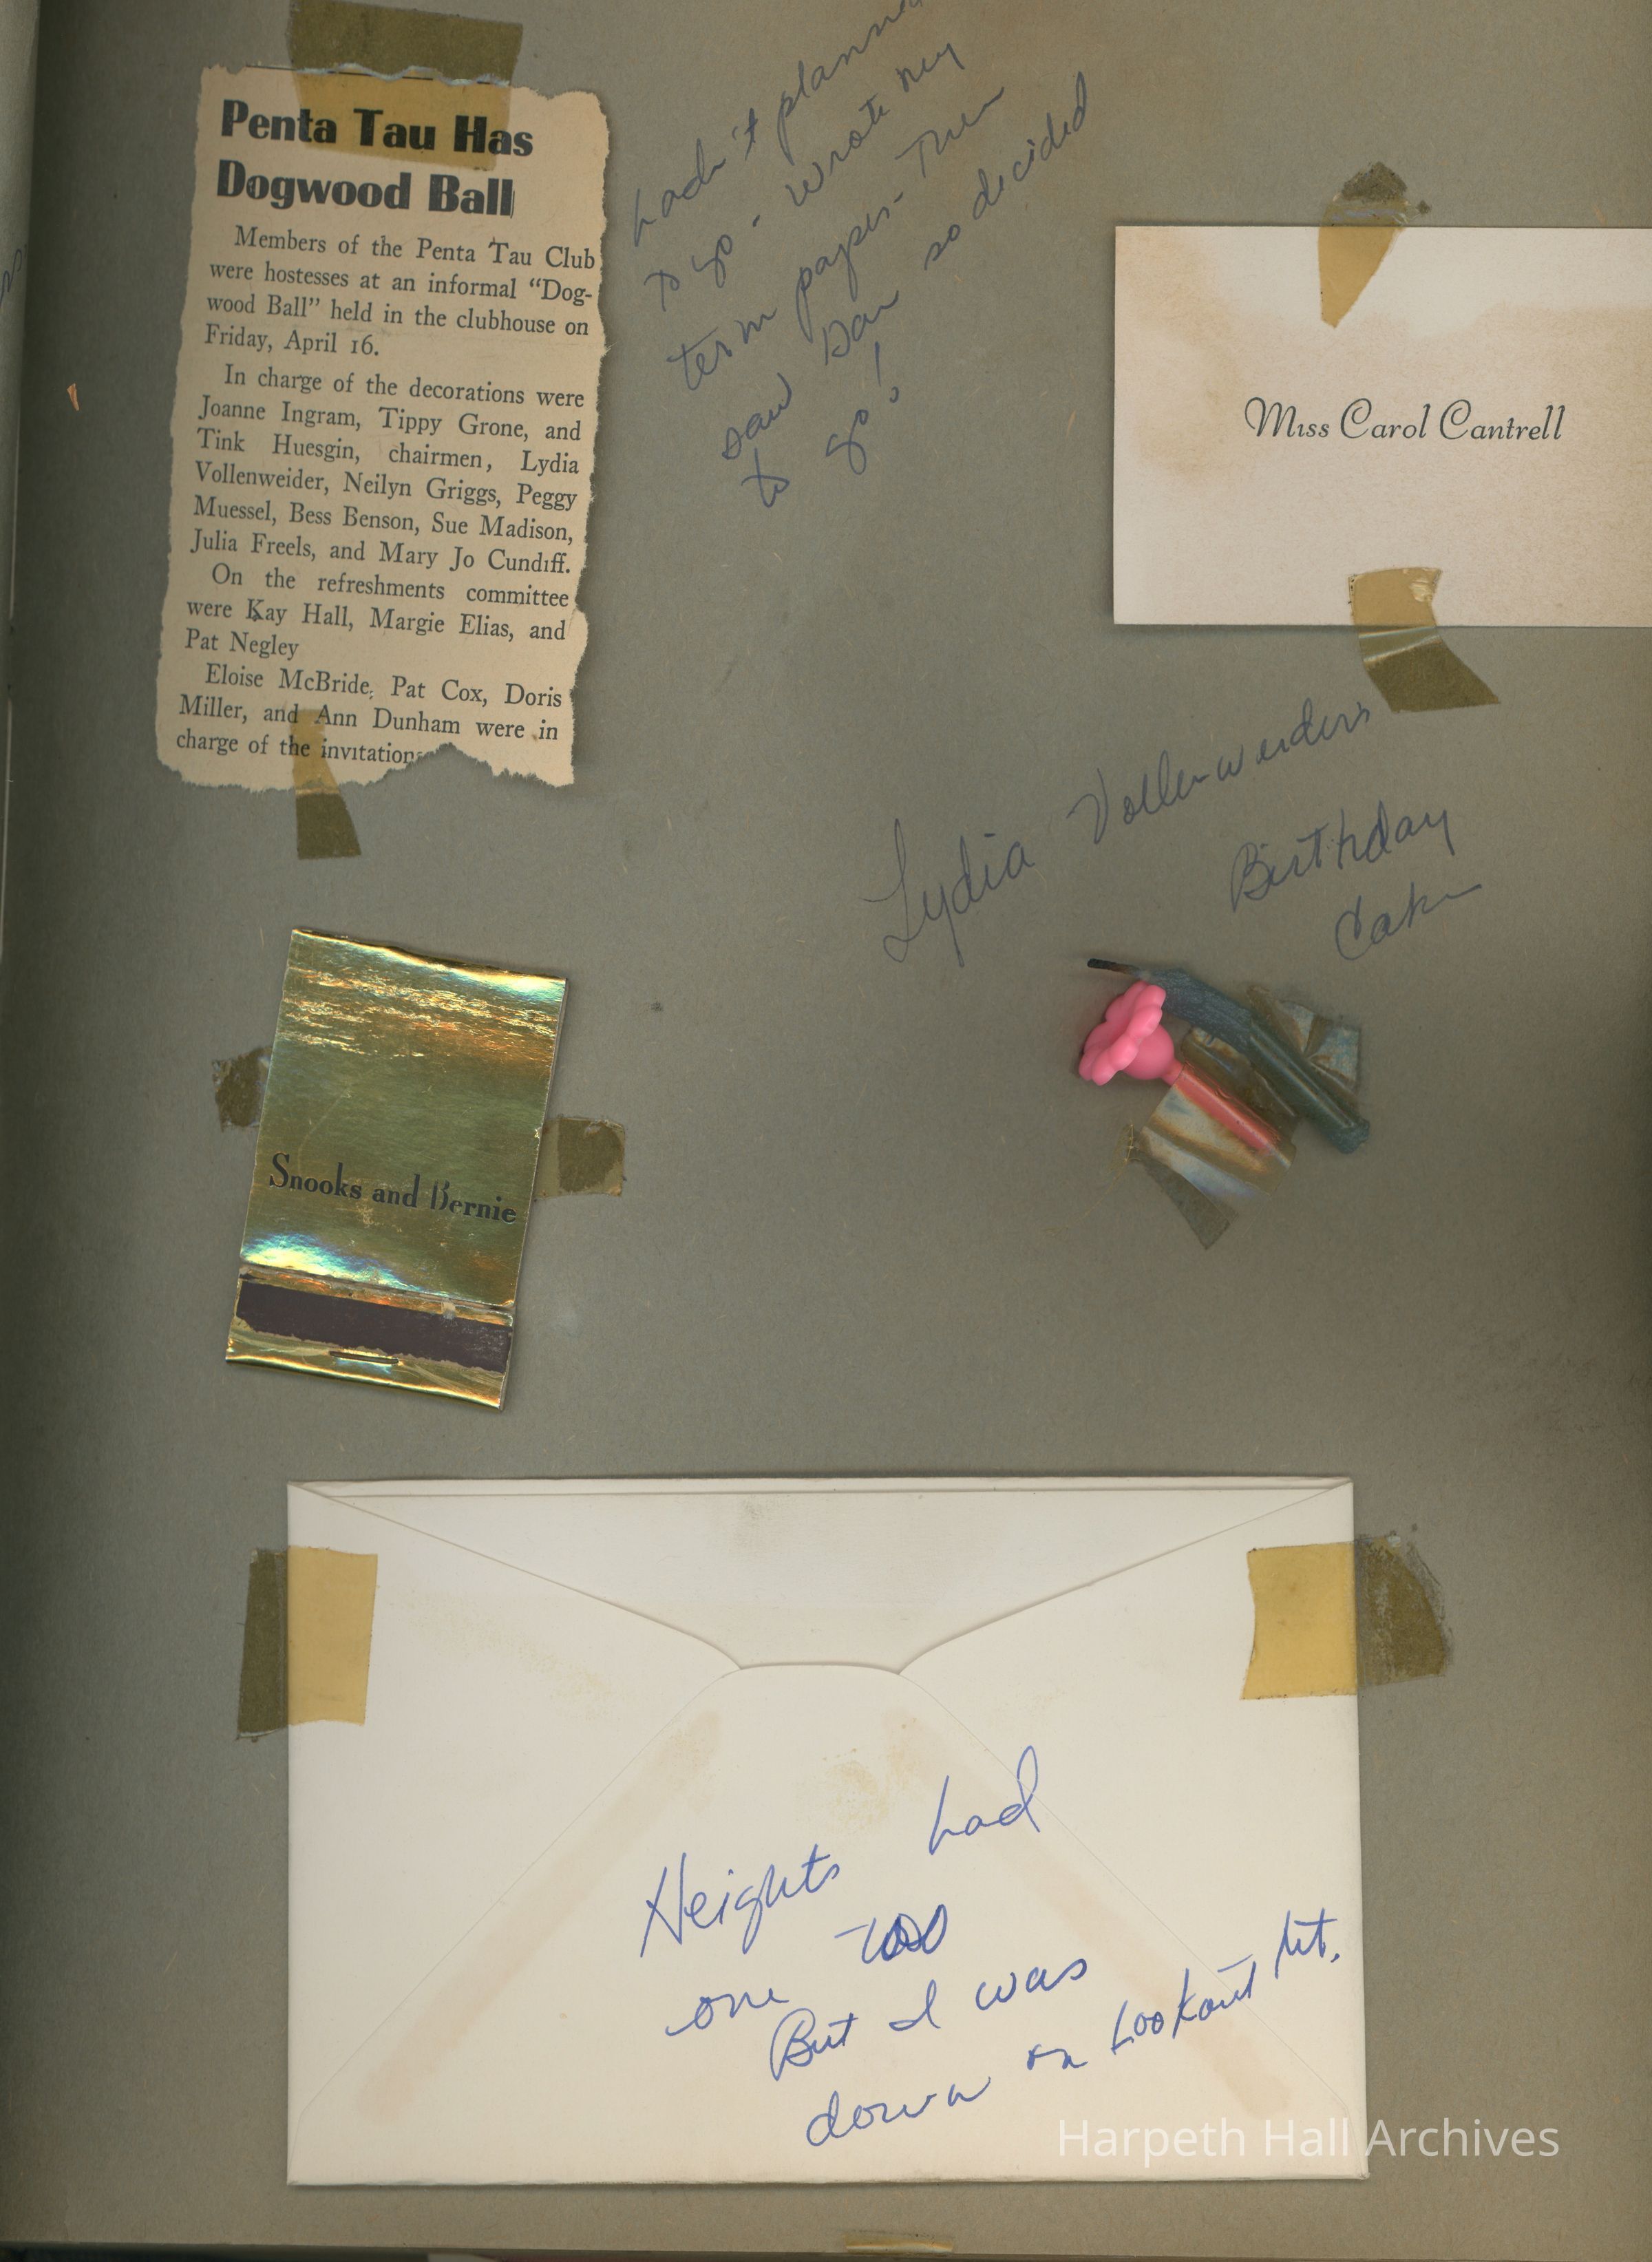 Penta Tau Has
Dogwood Ball
Members of the Penta Tau Club
were hostesses at an informal “Dog-
wood Ball” held in the clubhouse on
Friday, April 16.
In charge of the decorations were
Joanne Ingram, Tippy Grone, and
Tink Huesgin, chairmen, Lydia
Vollenweider, Neilyn Griggs, Peggy
Muessel, Bess Benson, Sue Madison,
Julia Freels, and Mary Jo Cundiff.
On the refreshments committee
were Kay Hall, Margie Elias, and
Pat Negley
Eloise McBride, Pat Cox, Doris
Miller, and Ann Dunham were in
charge of the invitations
hadn't planned
to go - wrote my
term paper - Then
saw Dan so decided
to go!
Miss Carol Cantrell
Lydia Vollenweiders
Birthday
Cake
Snooks and Bernie
Heights had
one too
But I was
down on Lookout Mt.
Harpeth Hall Archives